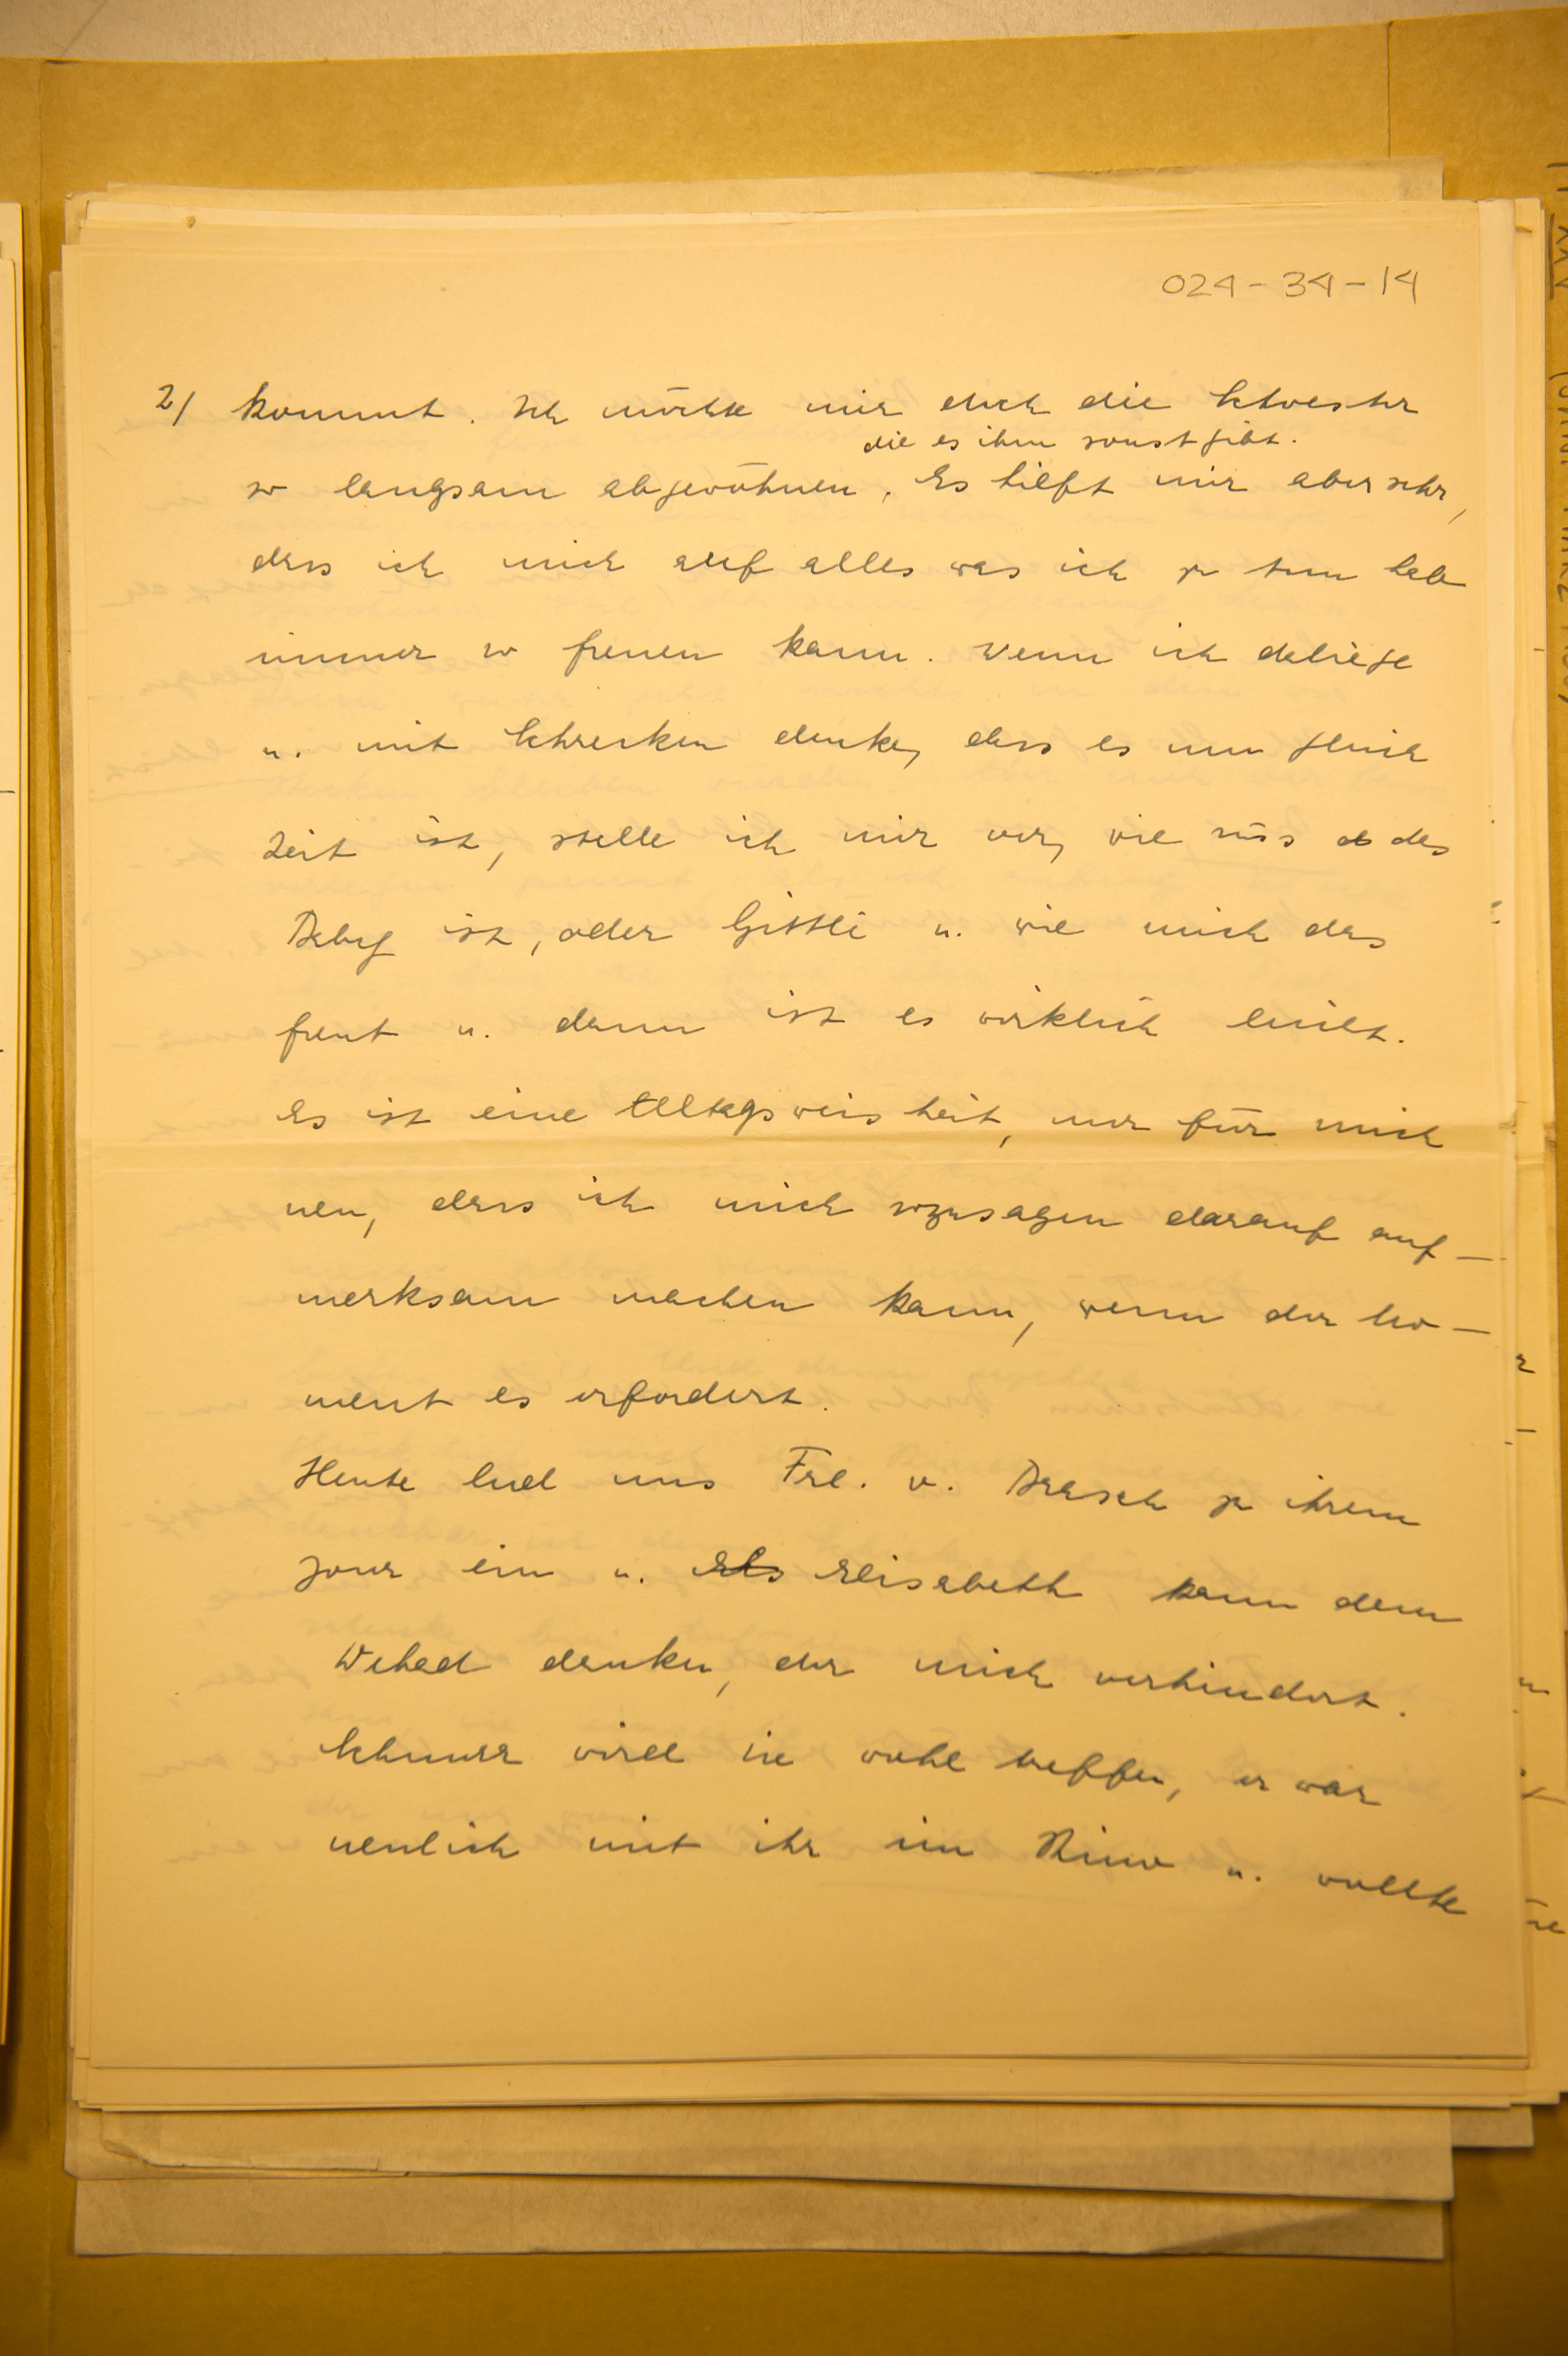 024-34-14
2/ kommt. Ich möchte mir doch die Schwester
die es ihm sonst gibt.
so langsam abgewöhnen. Es hilft mir aber sehr,
dass ich mich auf alles was ich zu tun hab
immer so freuen kann. Wenn ich daliege
u. mit Schrecken denke, dass es nun gleich
Zeit ist, stelle ich mir vor, wie süss das
Baby ist, oder Gittli u. wie mich das
freut u. dann ist es wirklich leicht.
Es ist eine Alltagsweisheit, nur für mich
neu, dass ich mich sozusagen darauf auf-
merksam machen kann, wenn der Mo-
ment es erfordert.
Heute lud uns Frl. v. Drasch zu ihrem
Jour ein u. Els Elisabeth kann dem
Wehad danken, der mich verhindert.
wird sie wohl treffen, er war
neulich mit ihr im Kino u. wollte